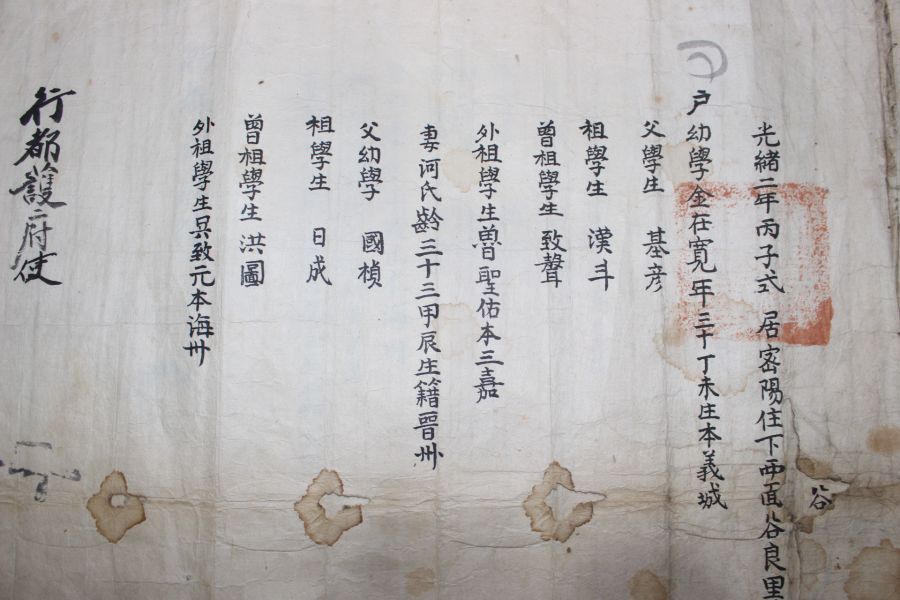 谷
光緒二年丙子式 居密陽住下西面谷良里
戶幼學金在寬年三十丁未生本義城
父學生 基彦
祖學生 漢斗
曾祖學生 致聲
外祖學生曾聖佑本三嘉
妻河氏齡三十三甲辰生籍晉州
父幼學 國楨
祖學生 日成
曾祖學生 洪圖
外祖學生吳致元本海州
行都護府使